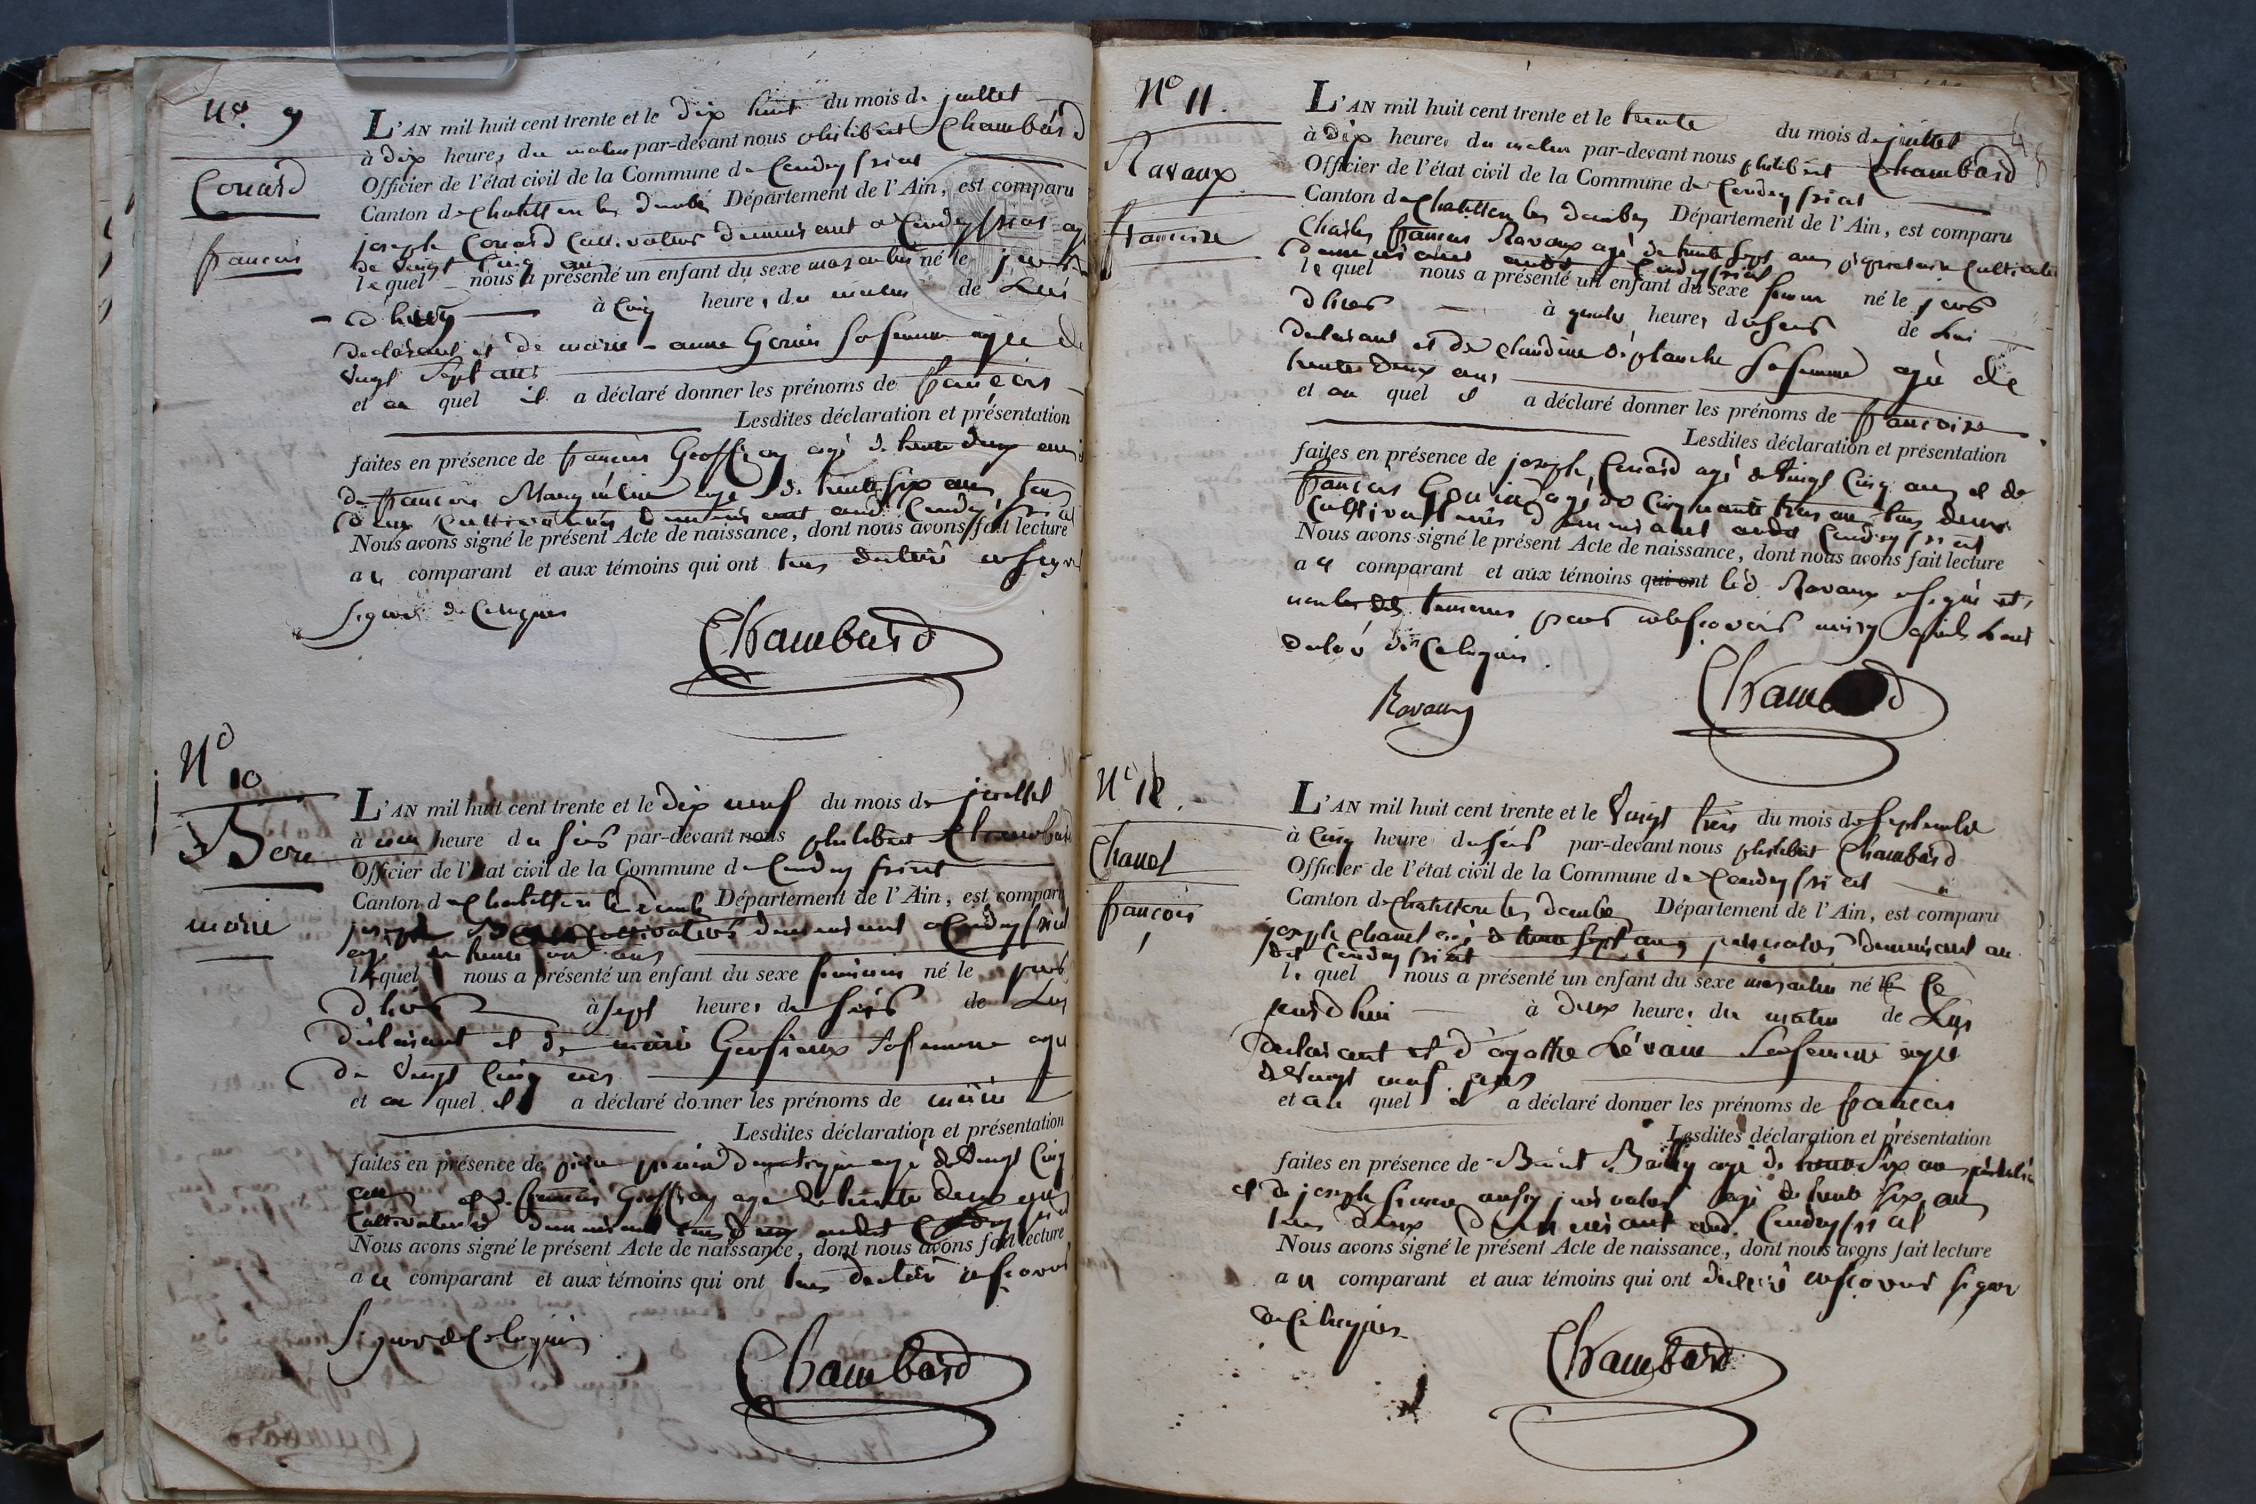 N° 9
Couard
françois
L'AN mil huit cent trente et le dix huit du mois de juillet
à dix heures du matin par-devant nous philibert Chambard
Officier de l'état civil de la Commune de Condeyssiat
Canton de Chatillon les dombes Département de l'Ain, est comparu
joseph Couard Cultivateur demeurant a Condeyssiat agé
de vingt Cinq ans
lequel nous a présenté un enfant du sexe masculin né le jour
d'huy à Cinq heures du matin de Lui
declarant et de marie anne Gouin sa femme agée de
vingt Sept ans
et au quel il a déclaré donner les prénoms de françois
Lesdites déclaration et présentation
faites en présence de françois Geoffray agé de trente deux ans
de françois agé de trente six ans tous
deux Cultivateurs demeurant aud. Condeyssiat
Nous avons signé le présent Acte de naissance, dont nous avons fait lecture
au comparant et aux témoins qui ont tous declaré
signer de Ce requis
Chambard
N° 10
Bere
marie
L'AN mil huit cent trente et le dix neuf du mois de juillet
à une heure du soir par-devant nous philibert Chambard
Officier de l'état civil de la Commune de Condeyssiat
Canton de Chatillon les dombes Département de l'Ain, est comparu
joseph Cultivateur demeurant a Condeyssiat
agé de trente ans
lequel nous a présenté un enfant du sexe feminin né le jour
d'hier à sept heures du soir de Lui
declarant et de marie sa femme agée
de vingt Cinq ans
et au quel il a déclaré donner les prénoms de marie
Lesdites déclaration et présentation
faites en présence de agé de vingt Cinq
ans et de françois Geoffray agé de trente deux ans
Cultivateurs demeurant tous deux audit Condeyssiat
Nous avons signé le présent Acte de naissance, dont nous avons fait lecture
au comparant et aux témoins qui ont tous declaré
signer de Ce requis
Chambard
N° 11.
Ravaux
françoise
L'AN mil huit cent trente et le trente du mois de juillet
à dix heures du matin par-devant nous philibert Chambard
Officier de l'état civil de la Commune de Condeyssiat
Canton de Chatillon les dombes Département de l'Ain, est comparu
Charles françois Ravaux agé de trente sept ans propriétaire Cultivateur
demeurant audit Condeyssiat
lequel nous a présenté un enfant du sexe né le jour
d'hier à quatre heures du soir de Lui
declarant et de Claudine Déplanche sa femme agée de
trente deux ans
et au quel il a déclaré donner les prénoms de françoise
Lesdites déclaration et présentation
faites en présence de joseph Couard agé de vingt Cinq ans et de
françois Gouin agé de Cinquante trois ans tous deux
Cultivateurs demeurant audit Condeyssiat
Nous avons signé le présent Acte de naissance, dont nous avons fait lecture
au comparant et aux témoins qui ont led. Ravaux a signé et
non les temoins pour
de Ce requis.
Ravaux
Chambard
N° 12.
Chanel
françois
L'AN mil huit cent trente et le vingt trois du mois de septembre
à Cinq heures du soir par-devant nous philibert Chambard
Officier de l'état civil de la Commune de Condeyssiat
Canton de Chatillon les dombes Département de l'Ain, est comparu
joseph Chanel agé de trente sept ans journalier demeurant au
dit Condeyssiat
lequel nous a présenté un enfant du sexe masculin né le Ce
jourdhui à deux heures du matin de Lui
declarant et d'agathe Lévain sa femme agée
de vingt neuf ans
et au quel il a déclaré donner les prénoms de françois
Lesdites déclaration et présentation
faites en présence de Benoit Bailly agé de trente six ans journalier
et de joseph aussy journalier agé de trente six ans
tous deux demeurant aud. Condeyssiat
Nous avons signé le présent Acte de naissance, dont nous avons fait lecture
au comparant et aux témoins qui ont declaré ne scavoir signer
de Ce requis
Chambard